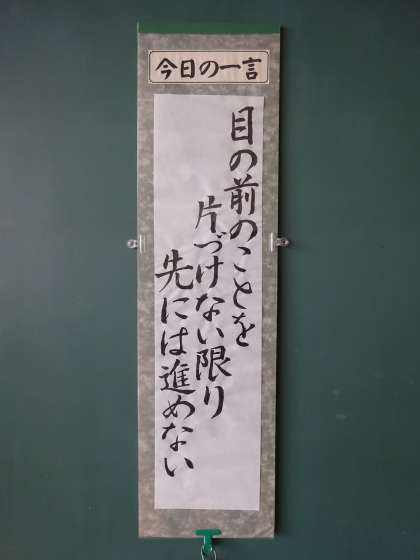 今日の一言
目の前のことを
片づけない限り
先には進めない